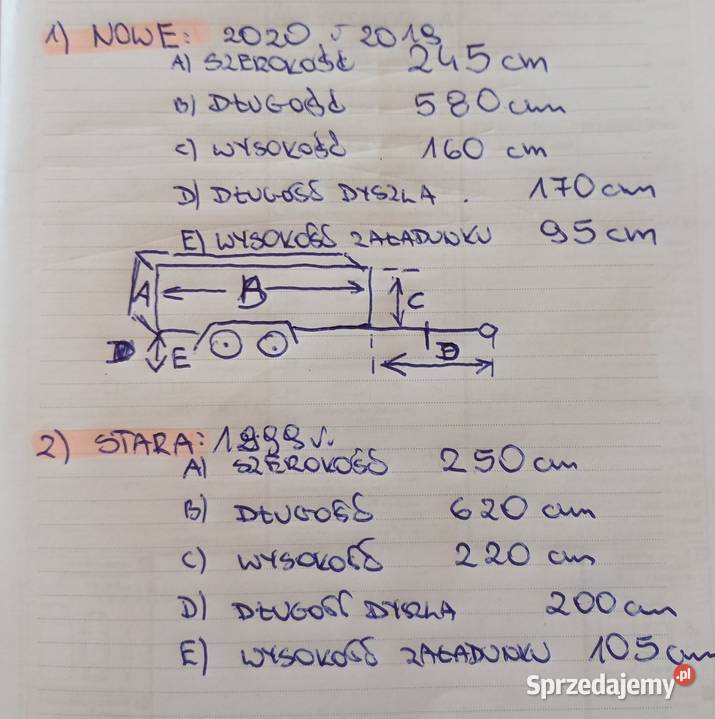 1) NOWE: 2020 r 2019
A) SZEROKOŚĆ 245 cm
B) DŁUGOŚĆ 580 cm
C) WYSOKOŚĆ 160 cm
D) DŁUGOŚĆ DYSZLA. 170 cm
E) WYSOKOŚĆ ZAŁADUNKU 95 cm
A B C
D E D
2) STARA: 1999 r.
A) SZEROKOŚĆ 250 cm
B) DŁUGOŚĆ 620 cm
C) WYSOKOŚĆ 220 cm
D) DŁUGOŚĆ DYSZLA 200 cm
E) WYSOKOŚĆ ZAŁADUNKU 105 cm
Sprzedajemy.pl